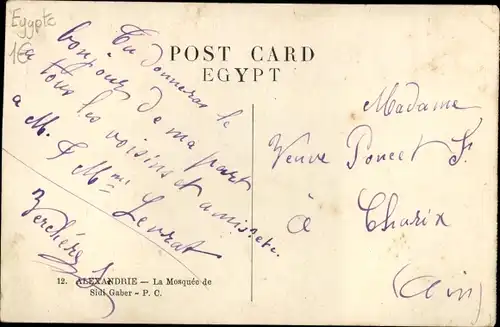 Egypte
1€
POST CARD
EGYPT
Tu donneras le
bonjour de ma part
a tous les voisins et amis etc.
a M. & Mme Levrat
Verchère J.
Madame
Veuve Poncet J.
à Charix
(Ain)
12. ALEXANDRIE — La Mosquée de
Sidi Gaber - P. C.